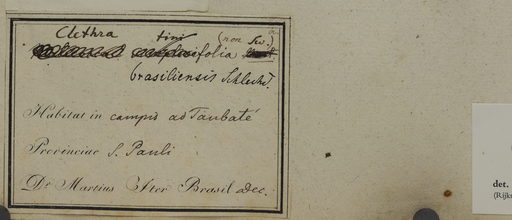 Clethra tini (non Sw.)
folia
brasiliensis Schlecht.
Habitat in campis ad Taubaté
Provinciae S. Pauli
Dr Martius Iter Brasil. &c.
det.
(Rijks